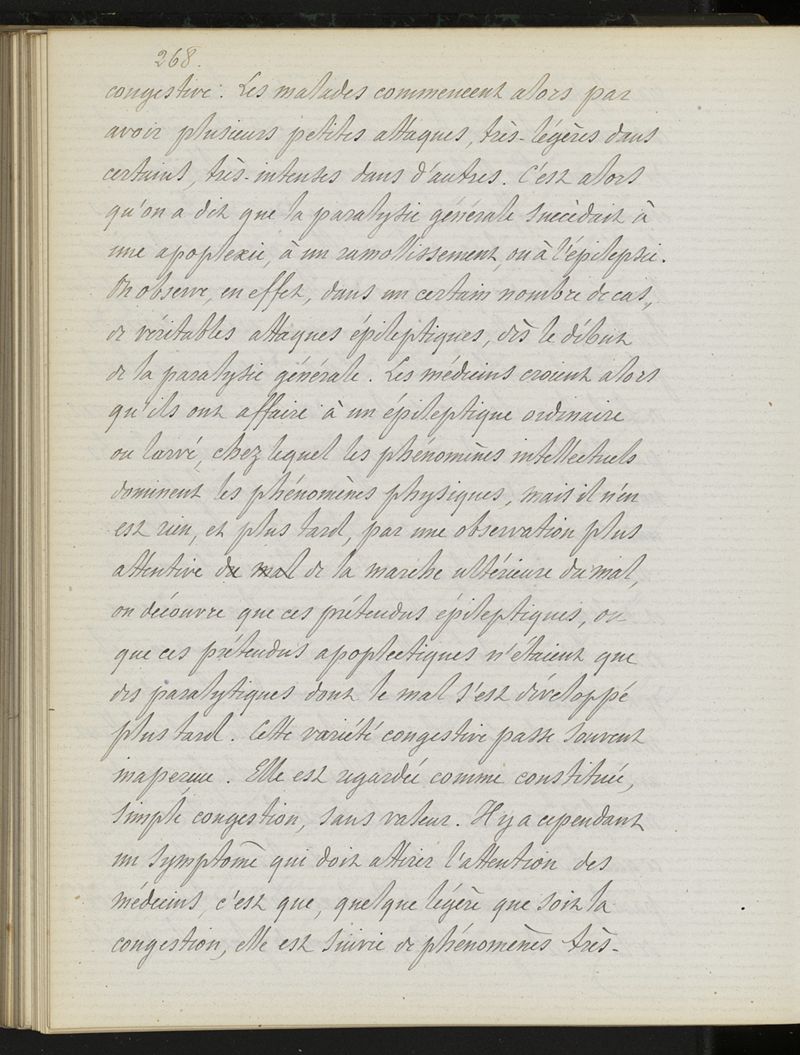 268.
congestive. Les malades commencent alors par
avoir plusieurs petites attaques, très-légères dans
certains, très-intenses dans d'autres. C'est alors
qu'on a dit que la paralysie générale succèdait à
une apoplexie, à un ramollissement, ou à l'épilepsie.
On observe, en effet, dans un certain nombre de cas,
de véritables attaques épileptiques, dès le début
de la paralysie générale. Les médecins croient alors
qu'ils ont affaire à un épileptique ordinaire
ou larvé, chez lequel les phénomènes intellectuels
dominent les phénomènes physiques, mais il n'en
est rien, et plus tard, par une observation plus
attentive du mal de la marche ultérieure du mal,
on découvre que ces prétendus épileptiques, ou
que ces prétendus apoplectiques n'étaient que
des paralytiques dont le mal s'est développé
plus tard. Cette variété congestive passe souvent
inaperçue. Elle est regardée comme constituée,
simple congestion, sans valeur. Il y a cependant
un symptôme qui doit attirer l'attention des
médecins, c'est que, quelque légère que soit la
congestion, elle est suivie de phénomènes très-